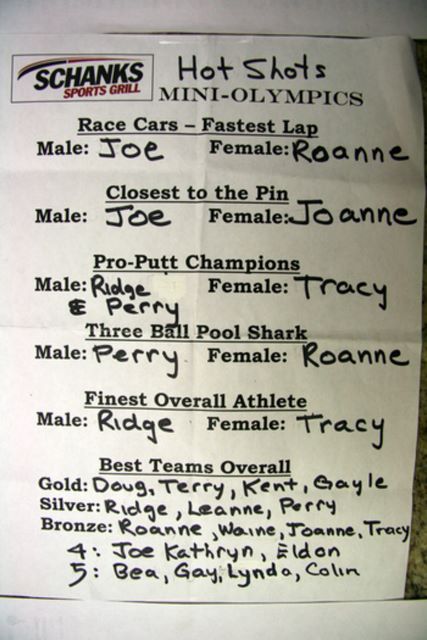 SCHANKS
SPORTS GRILL
Hot Shots
MINI-OLYMPICS
Race Cars – Fastest Lap
Male: Joe Female: Roanne
Closest to the Pin
Male: Joe Female: Joanne
Pro-Putt Champions
Male: Ridge Female: Tracy
& Perry
Three Ball Pool Shark
Male: Perry Female: Roanne
Finest Overall Athlete
Male: Ridge Female: Tracy
Best Teams Overall
Gold: Doug, Terry, Kent, Gayle
Silver: Ridge, Leanne, Perry
Bronze: Roanne, Waine, Joanne, Tracy
4: Joe Kathryn, Eldon
5: Bea, Gay, Lynda, Colin